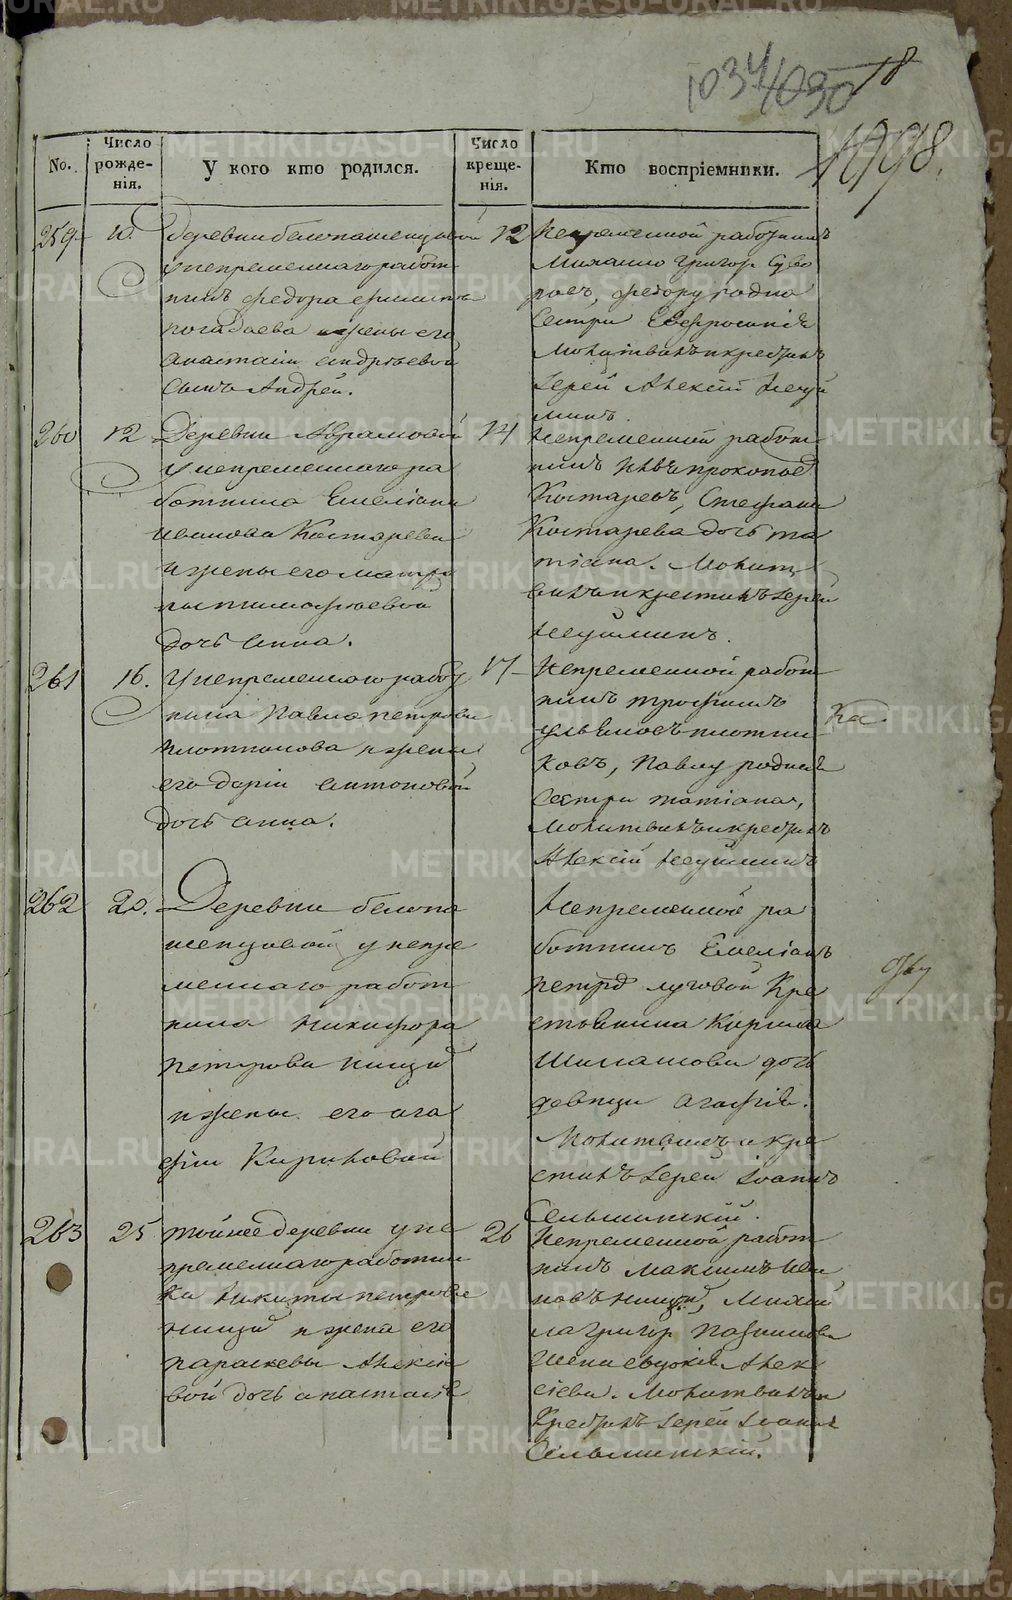 1034
1030
18
1098.
No.
Число рожде-нія.
У кого кто родился.
Число креще-нія.
Кто воспріемники.
259
10.
Деревни белопашенцовой
у непременнаго работ
ника Федора
Погадаева жены его
Анастасіи Андреевой
сынъ Андрей.
12
Непременной работникъ
Михаило Григор Суво
ровъ, Федору родна
сестра Евфросинія
Молитвилъ и крестилъ
Іерей Алексій Неуй
минъ.
260
12
Деревни Абрамовой
у непременнаго ра
ботника Емеліана
Иванова Костарева
и жены его Матро
ны Тимофеевой
дочь Анна.
14
Непременной работ
никъ Ивъ Прокопьев
Костаревъ, Стефана
Костарева дочь Та
тіана. Молит
вилъ и крестилъ Іерей
Неуйминъ.
261
16.
У непременнаго работ
ника Павла Петрова
Плотникова и жены
его Даріи Антоновой
дочь Анна.
17
Непременной работ
никъ Трофимъ
Плотни
ковъ, Павлу родная
сестра Татіана,
Молитвилъ и крестилъ
Алексій Неуйминъ
262
20.
Деревни белопа
шенцовой у непре
меннаго работ
ника Никифора
Петрова
и жены его Ага
фіи Кириловой
Непременной ра
ботникъ Емеліанъ
Петров Луговой Кре
стьянина Кирила
Шалашова дочь
девица Агафія.
Молитвилъ и кре
стилъ Іерей Іоаннъ
Сельминскій.
263
25
Той же деревни у не
пременнаго работни
ка Никиты Петрова
и жены его
Параскевы Алексіе
вой дочь Анастасія
26
Непременной работ
никъ Максимъ Ива
новъ Михай
ла Григор
жена Евдокія Алек
сіева. Молитвилъ и
Крестилъ Іерей Іоаннъ
Сельминскій.
METRIKI.GASO-URAL.RU